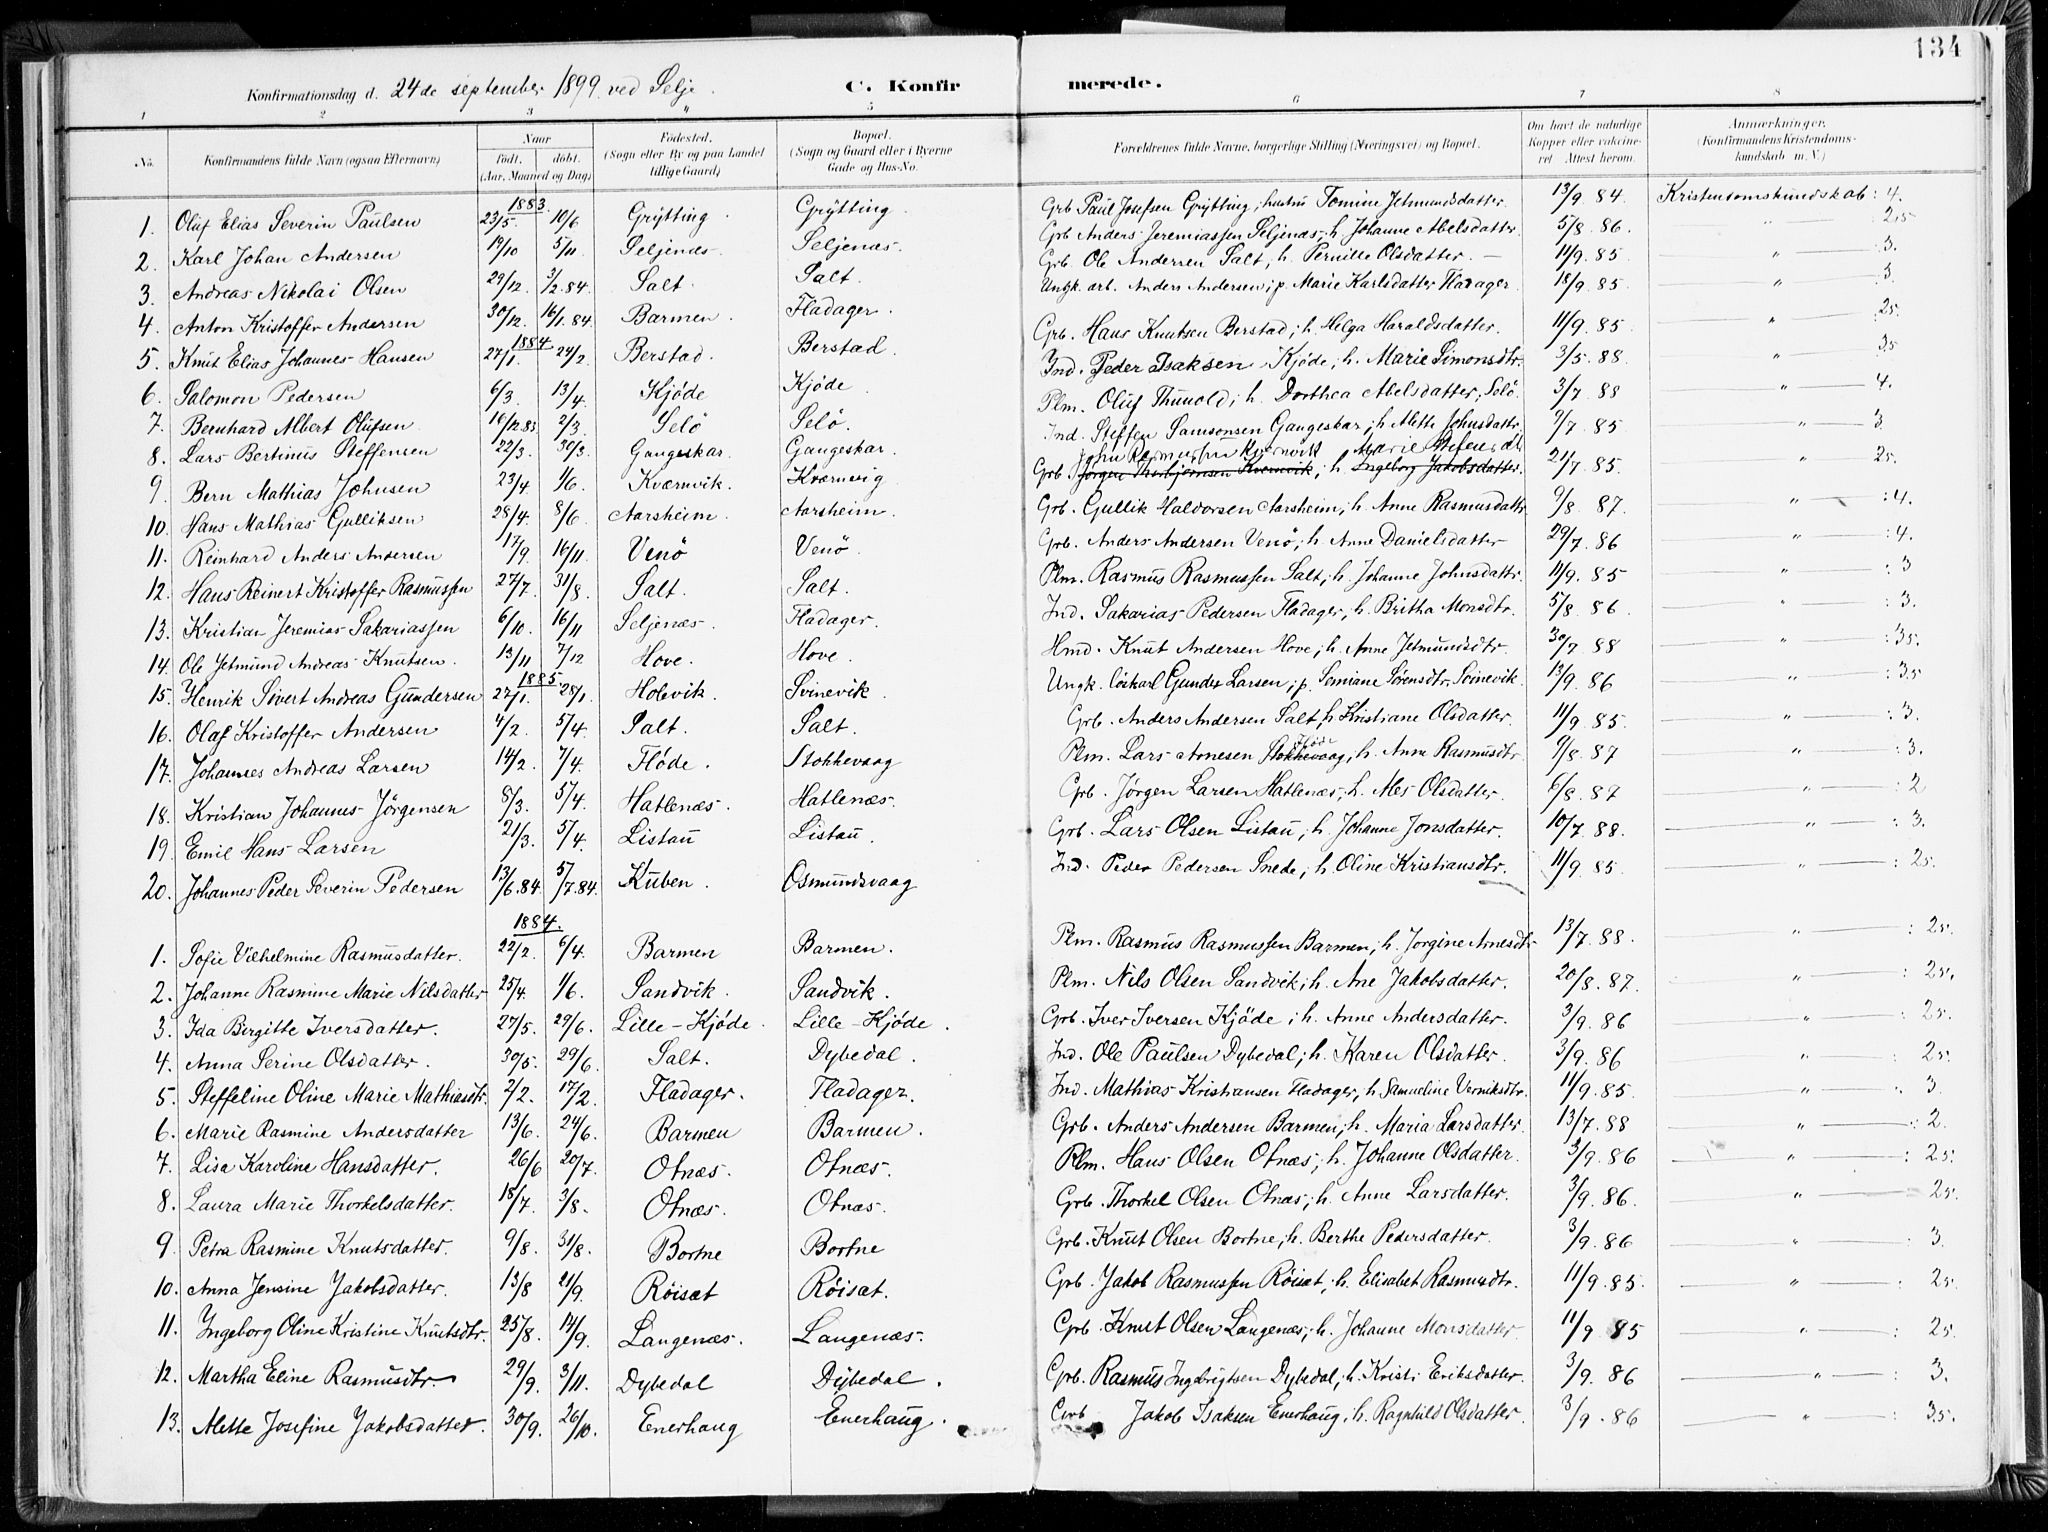 134
Konfirmationsdag d. 24de september 1899 ved Selje. C. Konfirmerede.
1 2 3 4 5 6 7 8
No. Konfirmandens fulde Navn (ogsaa Efternavn) Naar født. døbt. (Aar, Maaned og Dag) Fødested. (Sogn eller By og paa Landet tillige Gaard) Bopæl. (Sogn og Gaard eller i Byerne Gade og Hus-No. Forældrenes fulde Navne, borgerlige Stilling (Næringsvei) og Bopæl. Om havt de naturlige Kopper eller vaccineret. Attest herom. Anmærkninger. (Konfirmandens Kristendomskundskab m. V.)
1883
1. Oluf Elias Severin Paulsen 23/5. 10/6 Grÿtting. Grÿtting. Grb Paul Josefsen Grÿtting, hustru Tomine Jetmundsdatter. 13/9 84. Kristendomskundskab: 4.
2. Karl Johan Andersen 19/10 5/11 Seljenæs. Seljenæs. Grb Anders Jeremiassen Seljenæs; h. Johanne Abelsdatter. 5/8 86. " 2.5
3. Andreas Nikolai Olsen 29/12. 3/2.84. Salt. Salt. Grb. Ole Andersen Salt, h. Pernille Olsdatter. 11/9. 85. " 3.
4. Anton Kristoffer Andersen 30/12. 16/1.84. Barmen. Fladager. Ungk. arb. Anders Andersen; p. Marie Karlsdatter Fladager 18/9. 85. " 3
1884
5. Knut Elias Johannes Hansen 27/1. 24/2. Berstad. Berstad. Grb. Hans Knutsen Berstad; h. Helga Haraldsdatter. 11/9. 85 " 25.
6. Salomon Pedersen 6/3. 13/4. Kjøde Kjøde. Ind. Peder Isaksen Kjøde; h. Marie Simonsdtr. 3/5. 88. " 3.5
7. Bernhard Albert Olufsen 16/12.83. 2/3. Selö Selö. Plm. Oluf Thunold; h. Dorthea Abelsdatter, Selö. 3/7. 88 " 4.
8. Lars Bertinus Steffensen 22/3. 30/3. Gangeskar. Gangeskar. Ind. Steffen Samsonsen Gangeskar; h. Mette Johnsdatter. 9/7. 85 " 3.
9. Bern Mathias Johnsen 23/4. 1/6. Kværnvik. Kværnevig Grb. Jørgen Thorbjørnsen Kvernvik; h. Ingeborg Jakobsdatter. 21/7. 85. " 25.
10. Hans Mathias Gulliksen 28/4. 8/6. Aarsheim. Aarsheim. Grb. Gullik Haldorsen Aarsheim; h. Anne Rasmusdatter 9/8. 87. " : 4.
11. Reinhard Anders Andersen 17/9. 16/11. Venö Venö. Grb. Anders Andersen Venö; h. Anne Danielsdatter 29/7. 86 " : 4.
12. Hans Reinert Kristoffer Rasmussen 27/7. 31/8. Salt. Salt. Plm. Rasmus Rasmussen Salt; h. Johanne Johnsdatter. 11/9. 85 " : 3
13. Kristian Jeremias Sakariassen 6/10. 16/11 Seljenæs. Fladager. Ind. Sakarias Pedersen Fladager, h. Britha Monsdtr. 5/8. 86. " : 3.
14. Ole Jetmund Andreas Knutsen. 13/11 7/12 Hove. Hove. Hmd. Knut Andersen Hove; h. Anne Jetmundsdtr. 30/7. 88 " : 35.
1885
15. Henrik Sivert Andreas Gundersen 27/1. 28/1. Holevik. Svinevik. Ungk. löskarl Gunder Larsen; p. Semiane Sörensdtr. Svinevik. 13/9. 86 " : 3.5
16. Olaf Kristoffer Andersen 4/2. 5/4. Salt. Salt. Grb. Anders Andersen Salt, h. Kristiane Olsdatter. 11/9. 85. " : 3.
17. Johannes Andreas Larsen 14/2. 7/4. Flöde. Stokkevaag Plm. Lars Arnesen Stokkevaag Flöde; h. Anne Rasmusdtr. 9/8. 87 " : 3.
18. Kristian Johannes Jörgensen 8/3. 5/4. Hatlenæs. Hatlenæs. Grb. Jörgen Larsen Hatlenæs; h. Olsdatter. 6/8. 87 " : 2
19. Emil Hans Larsen 21/3. 5/4. Listau Listau. Grb. Lars Olsen Listau; h. Johanne Jonsdatter. 10/7. 88. " : 3.
20. Johannes Peder Severin Pedersen 13/6.84. 5/7.84. Kuben. Osmundsvaag Ind. Peder Pedersen Snede; h. Oline Kristiansdtr. 11/9. 85 " : 25.
1884.
1. Sofie Vilhelmine Rasmusdatter. 22/2. 6/4. Barmen Barmen. Plm. Rasmus Rasmussen Barmen; h. Jorgine Arnesdtr 13/7. 88. " : 25.
2. Johanne Rasmine Marie Nilsdatter 25/4. 1/6. Sandvik. Sandvik. Plm. Nils Olsen Sandvik; h. Ane Jakobsdatter. 20/8. 87. " : 25.
3. Ida Birgitte Iversdatter. 27/5. 29/6. Lille-Kjöde. Lille-Kjöde. Grb. Iver Iversen Kjöde; h. Anne Andersdatter. 3/9. 86 " : 25.
4. Anna Serine Olsdatter. 30/5. 29/6. Salt. Dybedal. Ind. Ole Paulsen Dybedal; h. Karen Olsdatter. 3/9. 86 " : 25
5. Steffeline Oline Marie Mathiasdtr. 2/2. 17/2. Fladager. Fladager. Ind. Mathias Kristiansen Fladager, h. Samueline Verniksdtr. 11/9. 85. " : 3.
6. Marie Rasmine Andersdatter 13/6. 24/6. Barmen Barmen. Grb. Anders Andersen Barmen; h. Maria Larsdatter. 13/7. 88 " : 2.
7. Lisa Karoline Hansdatter. 26/6 20/7. Otnæs. Otnæs. Plm. Hans Olsen Otnæs; h. Johanne Olsdatter. 3/9. 86 " : 25.
8. Laura Marie Thorkelsdatter. 18/7. 3/8. Otnæs. Otnæs. Grb. Thorkel Olsen Otnæs; h. Anne Larsdatter. 3/9. 86. " : 25.
9. Petra Rasmine Knutsdatter. 9/8. 31/8. Bortne Bortne Grb. Knut Olsen Bortne; h. Berthe Pedersdatter. 3/9. 86 " : 3.
10. Anna Jensine Jakobsdatter. 13/8 21/9. Röisæt Röisæt. Grb. Jakob Rasmussen Röisæt; h. Elisabet Rasmusdtr. 11/9. 85. " : 25.
11. Ingeborg Oline Kristine Knutsdtr. 25/8. 14/9. Langenæs. Langenæs. Grb. Knut Olsen Langenæs; h. Johanne Monsdatter. 11/9 85 " : 25.
12. Martha Eline Rasmusdtr. 29/9. 3/11. Dybedal Dÿbedal. Grb. Rasmus Ingebrigtsen Dybedal; h. Kristi Eriksdatter. 3/9. 86 " : 3.
13. Mette Josefine Jakobsdatter. 30/9. 26/10. Enerhaug Enerhaug. Grb Jakob Isaksen Enerhaug; h. Ragnhild Olsdatter. 3/9. 86 " : 35.